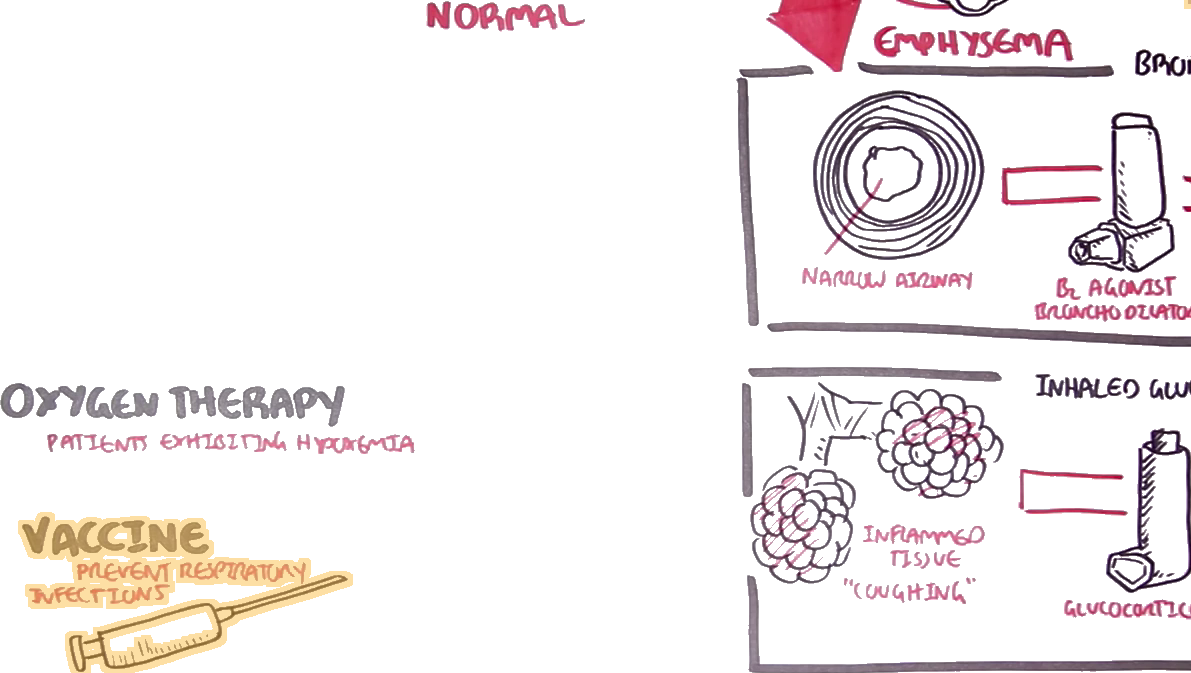 NORMAL
EMPHYSEMA
NARROW AIRWAY
B2 AGONIST
OXYGEN THERAPY
PATIENTS EXHIBITING HYPOXEMIA
INHALED
VACCINE
PREVENT RESPIRATORY
INFECTIONS
INFLAMMED
TISSUE
"COUGHING"